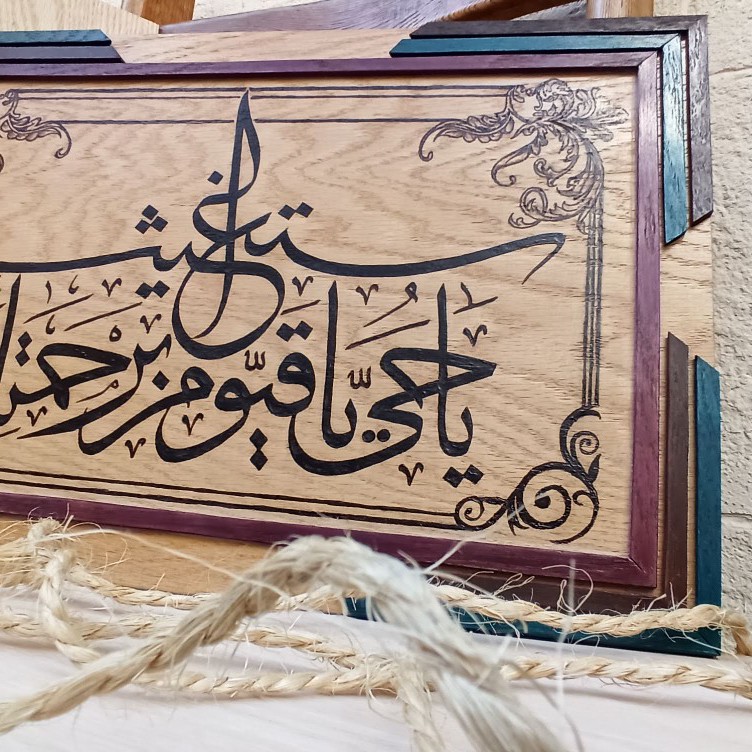 يا حيُّ يا قيّوم برحمتك
ستغيث